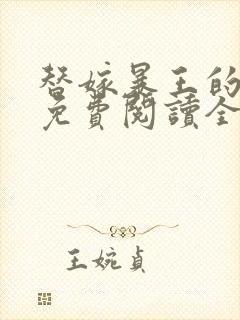 替嫁暴王的
免費閱讀全
王婉貞